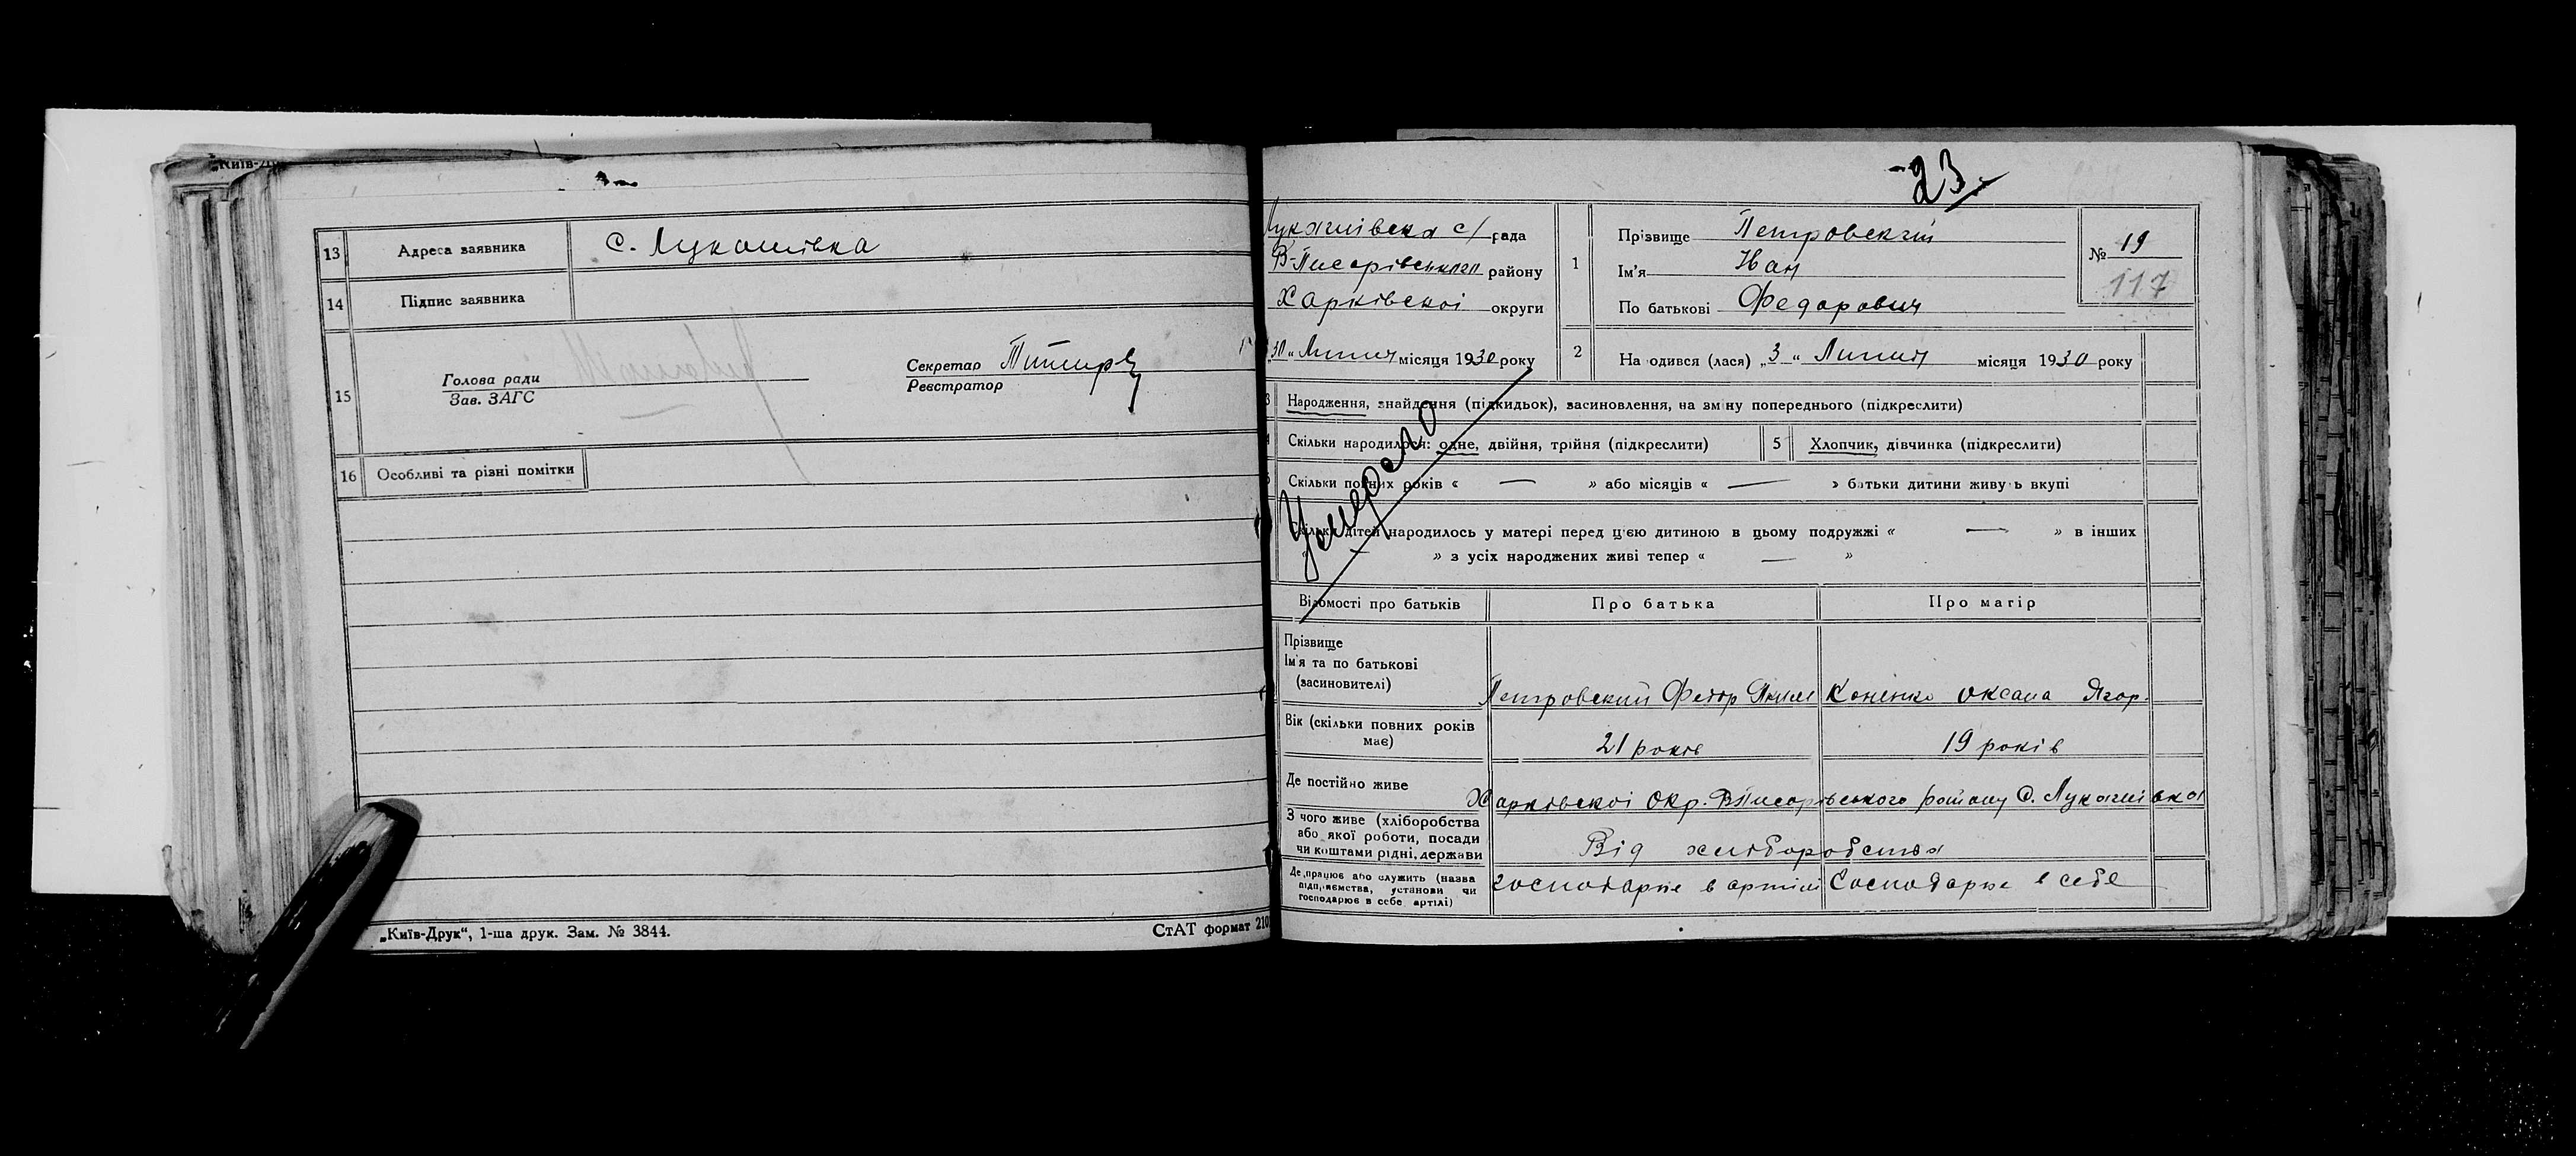 13 Адреса заявника с. Лукашівка
14 Підпис заявника
15 Голова ради
Зав. ЗАГС
Секретар
Реєстратор
16 Особливі та різні помітки
„Київ-Друк“, 1-ша друк. Зам. № 3844.
СтАТ формат 210
-23-
Лукашівска с/ рада
В-Писарівського району
Харківскоі округи
„30“ Липня місяця 1930 року
1 Прізвище Петровский
Ім'я Иван
По батькові Федорович
№ 19
117
2 На одився (лася) „3“ Липня місяця 1930 року
Умерло
3 Народження, знайдення (підкидьок), засиновлення, на зміну попереднього (підкреслити)
4 Скільки народилося: одне, двійня, трійня (підкреслити)
5 Хлопчик, дівчинка (підкреслити)
Скільки повних років « — » або місяців « — » батьки дитини живуть вкупі
Скільки дітей народилось у матері перед цією дитиною в цьому подружжі « — » в інших
» з усіх народжених живі тепер « — »
Відомості про батьків Про батька Про матір
Прізвище
Ім'я та по батькові
(засиновителі)
Петровский Федор Яким Коненко Оксана Ягор.
Вік (скільки повних років
має)
21 років 19 років
Де постійно живе
Харківскоі Окр. В-Писарівського району С. Лукашівка
З чого живе (хліборобства
або якої роботи, посади
чи коштами рідні, держави
Від хліборобства
Де працює або служить (назва
підприємства, установи чи
господарює в себе артілі)
господарює в артілі Господарює в себе